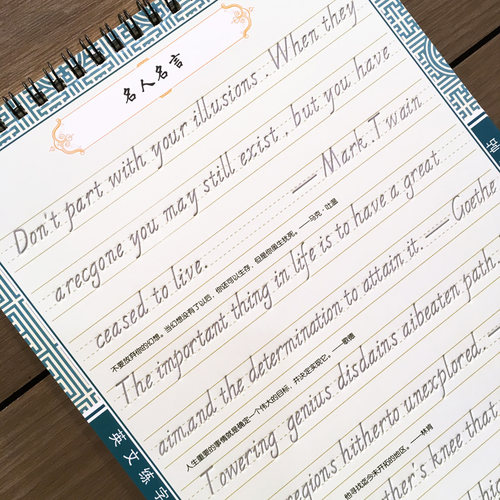 名人名言
Don't part with your illusions . When they
arecgone you may still exist , but you have
ceased to live. — Mark .Twain
不要放弃你的幻想。当幻想没有了以后，你还可以生存，但是你虽生犹死。——马克·吐温
The important thing in life is to have a great
aim,and the determination to attain it. — Goethe
人生重要的事情就是确定一个伟大的目标，并决定实现它。——歌德
Towering genius disdains aibeaten path.
regions hitherto unexplored. —
他寻找迄今未开拓的地区。——林肯
ther's knee that
英文练字